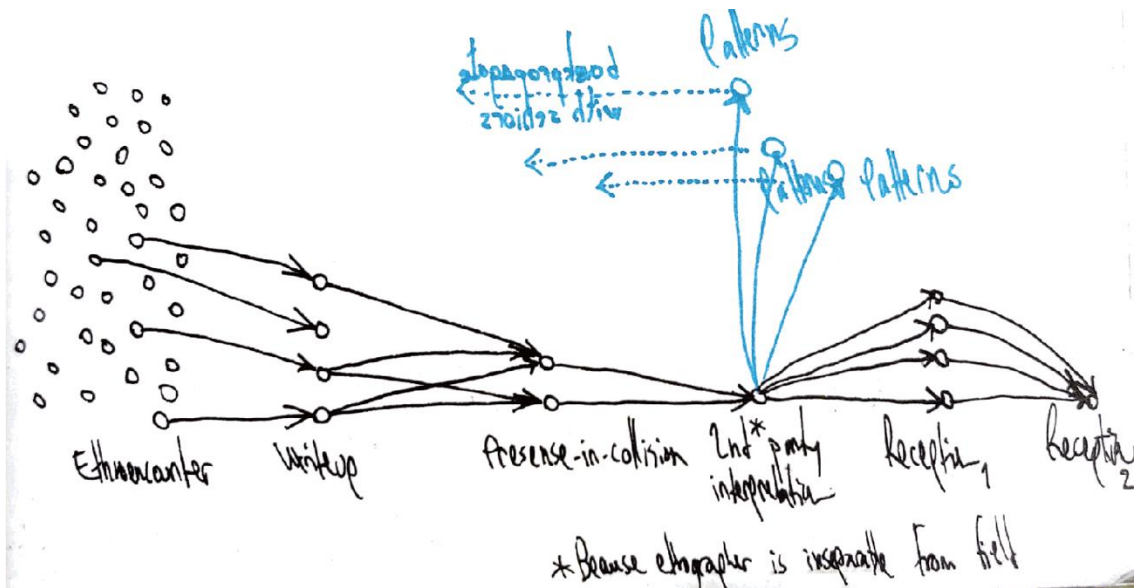 Patterns
backpropagate
with
Patterns
Patterns
Ethnoencounter
Writeup
Presense-in-collision
2nd* party
interpretation
Reception 1
Reception 2
*Because ethnographer is inseparable from field